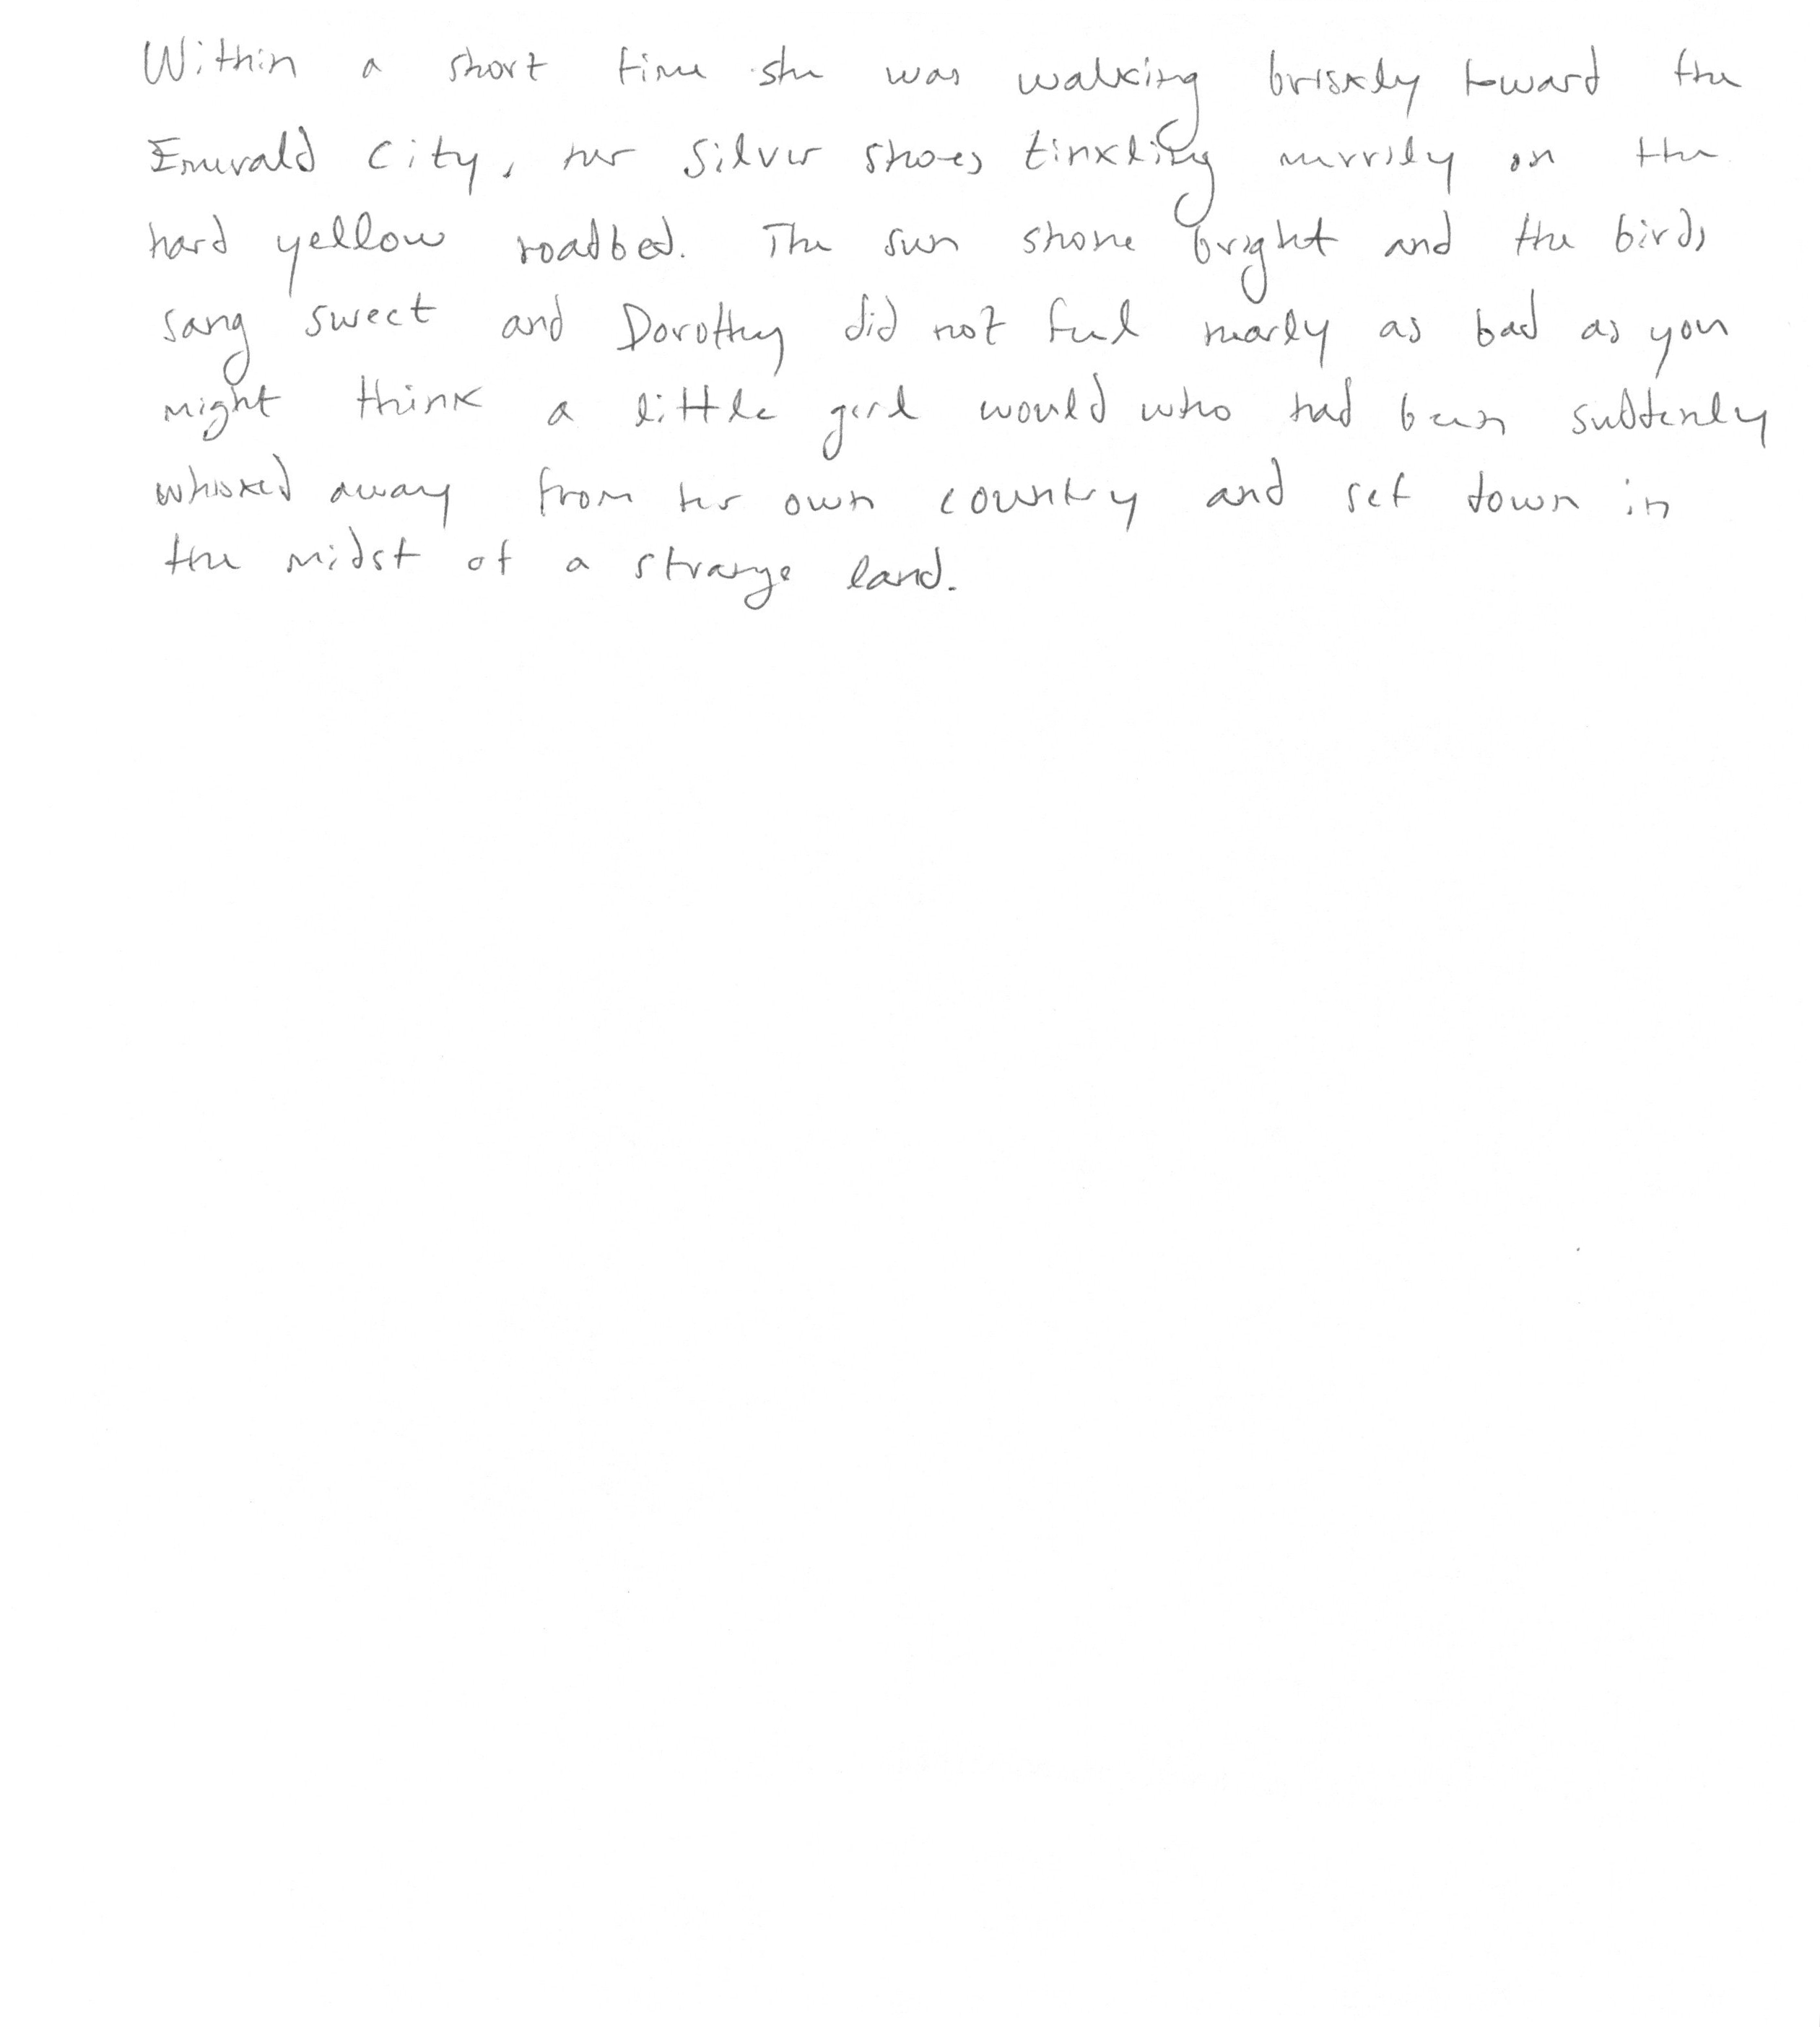 Within a short time she was walking briskly toward the
Emerald City, her Silver shoes tinkling merrily on the
hard yellow roadbed. The sun shone bright and the birds
sang sweet and Dorothy did not feel nearly as bad as you
might think a little girl would who had been suddenly
whisked away from her own country and set down in
the midst of a strange land.